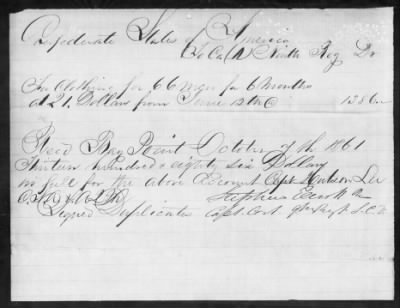 Confederate States of America
To Co. (A) Ninth Reg Dr
For Clothing for 66 men for 6 months
at 21. Dollars from June 12th 6 1386..
Rec'd Bay Point October 9th 1861
Thirteen hundred & eighty six Dollars
in full for the above Account Capt Hutson Lee
Stephen
Signed Duplicates Capt. Co A. 9th Regt S.C.V.